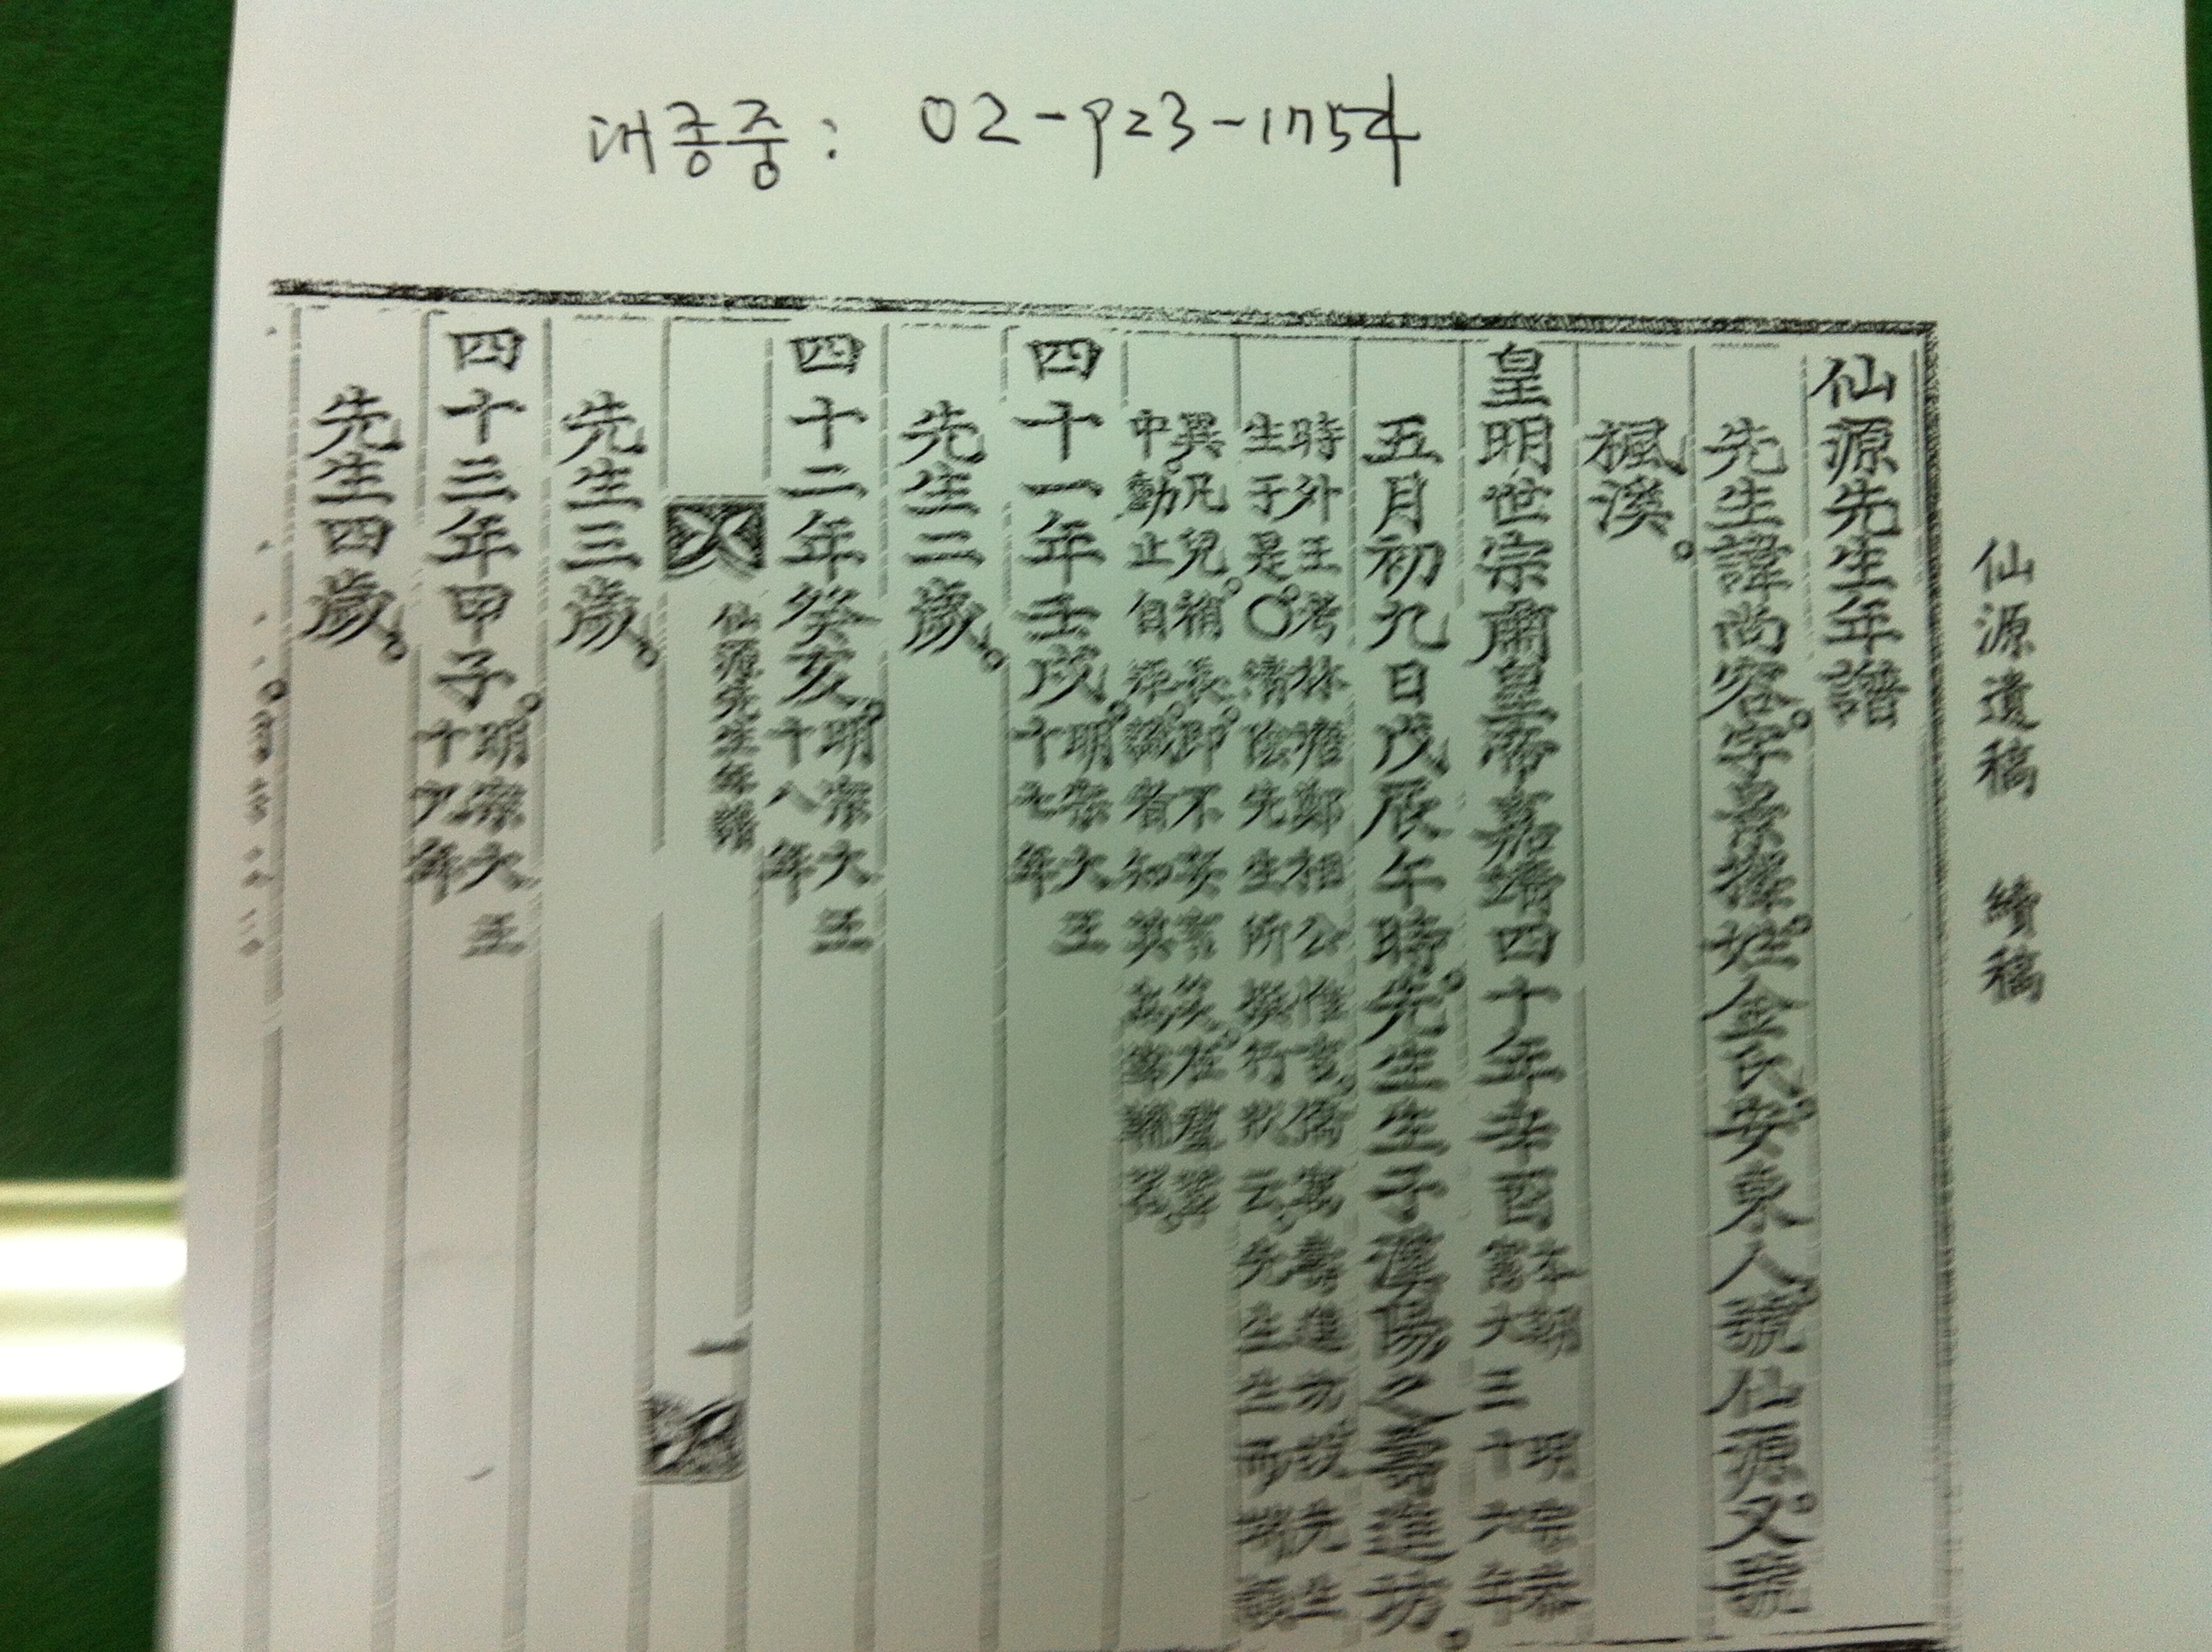 대종중: 02-923-1754
仙源遺稿 續稿
仙源先生年譜
先生諱尙容。字景擇。姓金氏。安東人。號仙源。又號
楓溪。
皇明世宗肅皇帝嘉靖四十年辛酉 本朝 明宗恭
五月初九日戊辰午時。先生生于漢陽之壽進坊。
時外王考林塘鄭相公惟吉。僑寓壽進坊。
生于是。○淸陰先生所撰行狀云。先生生而
異凡兒。稍長。卽不妄言笑。
中。動止自
四十一年壬戌。明宗大王
十七年
先生二歲。
四十二年癸亥。明宗大王
十八年
仙源先生年譜
一
先生三歲。
四十三年甲子。明宗大王
十九年
先生四歲。